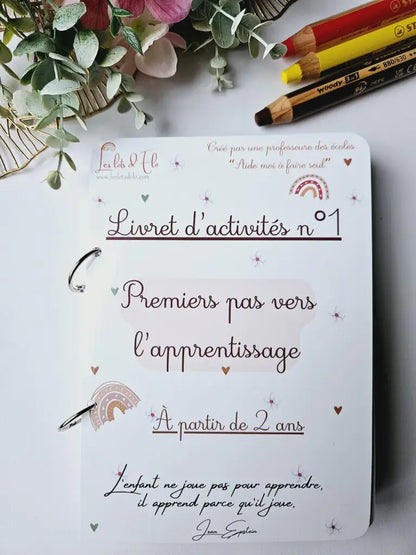 Les lots d'Ela
www.leslotsdela.com
Créé par une professeure des écoles
"Aide moi à faire seul"
Livret d'activités n°1
Premiers pas vers
l'apprentissage
À partir de 2 ans
L'enfant ne joue pas pour apprendre,
il apprend parce qu'il joue.
Jean Epstein
woody 3 in 1